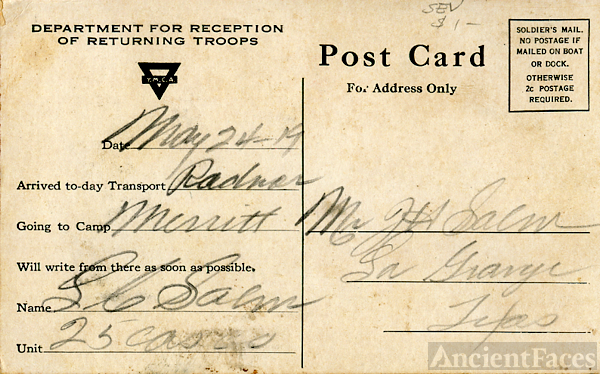 SEV
$1-
DEPARTMENT FOR RECEPTION
OF RETURNING TROOPS
Y.M.C.A
Date May 24-19
Arrived to-day Transport Radnor
Going to Camp Merritt
Will write from there as soon as possible.
Name Salm
Unit 25
Post Card
For Address Only
SOLDIER'S MAIL.
NO POSTAGE IF
MAILED ON BOAT
OR DOCK.
OTHERWISE
2c POSTAGE
REQUIRED.
Mr Salm
La Grange
Texas
AncientFaces